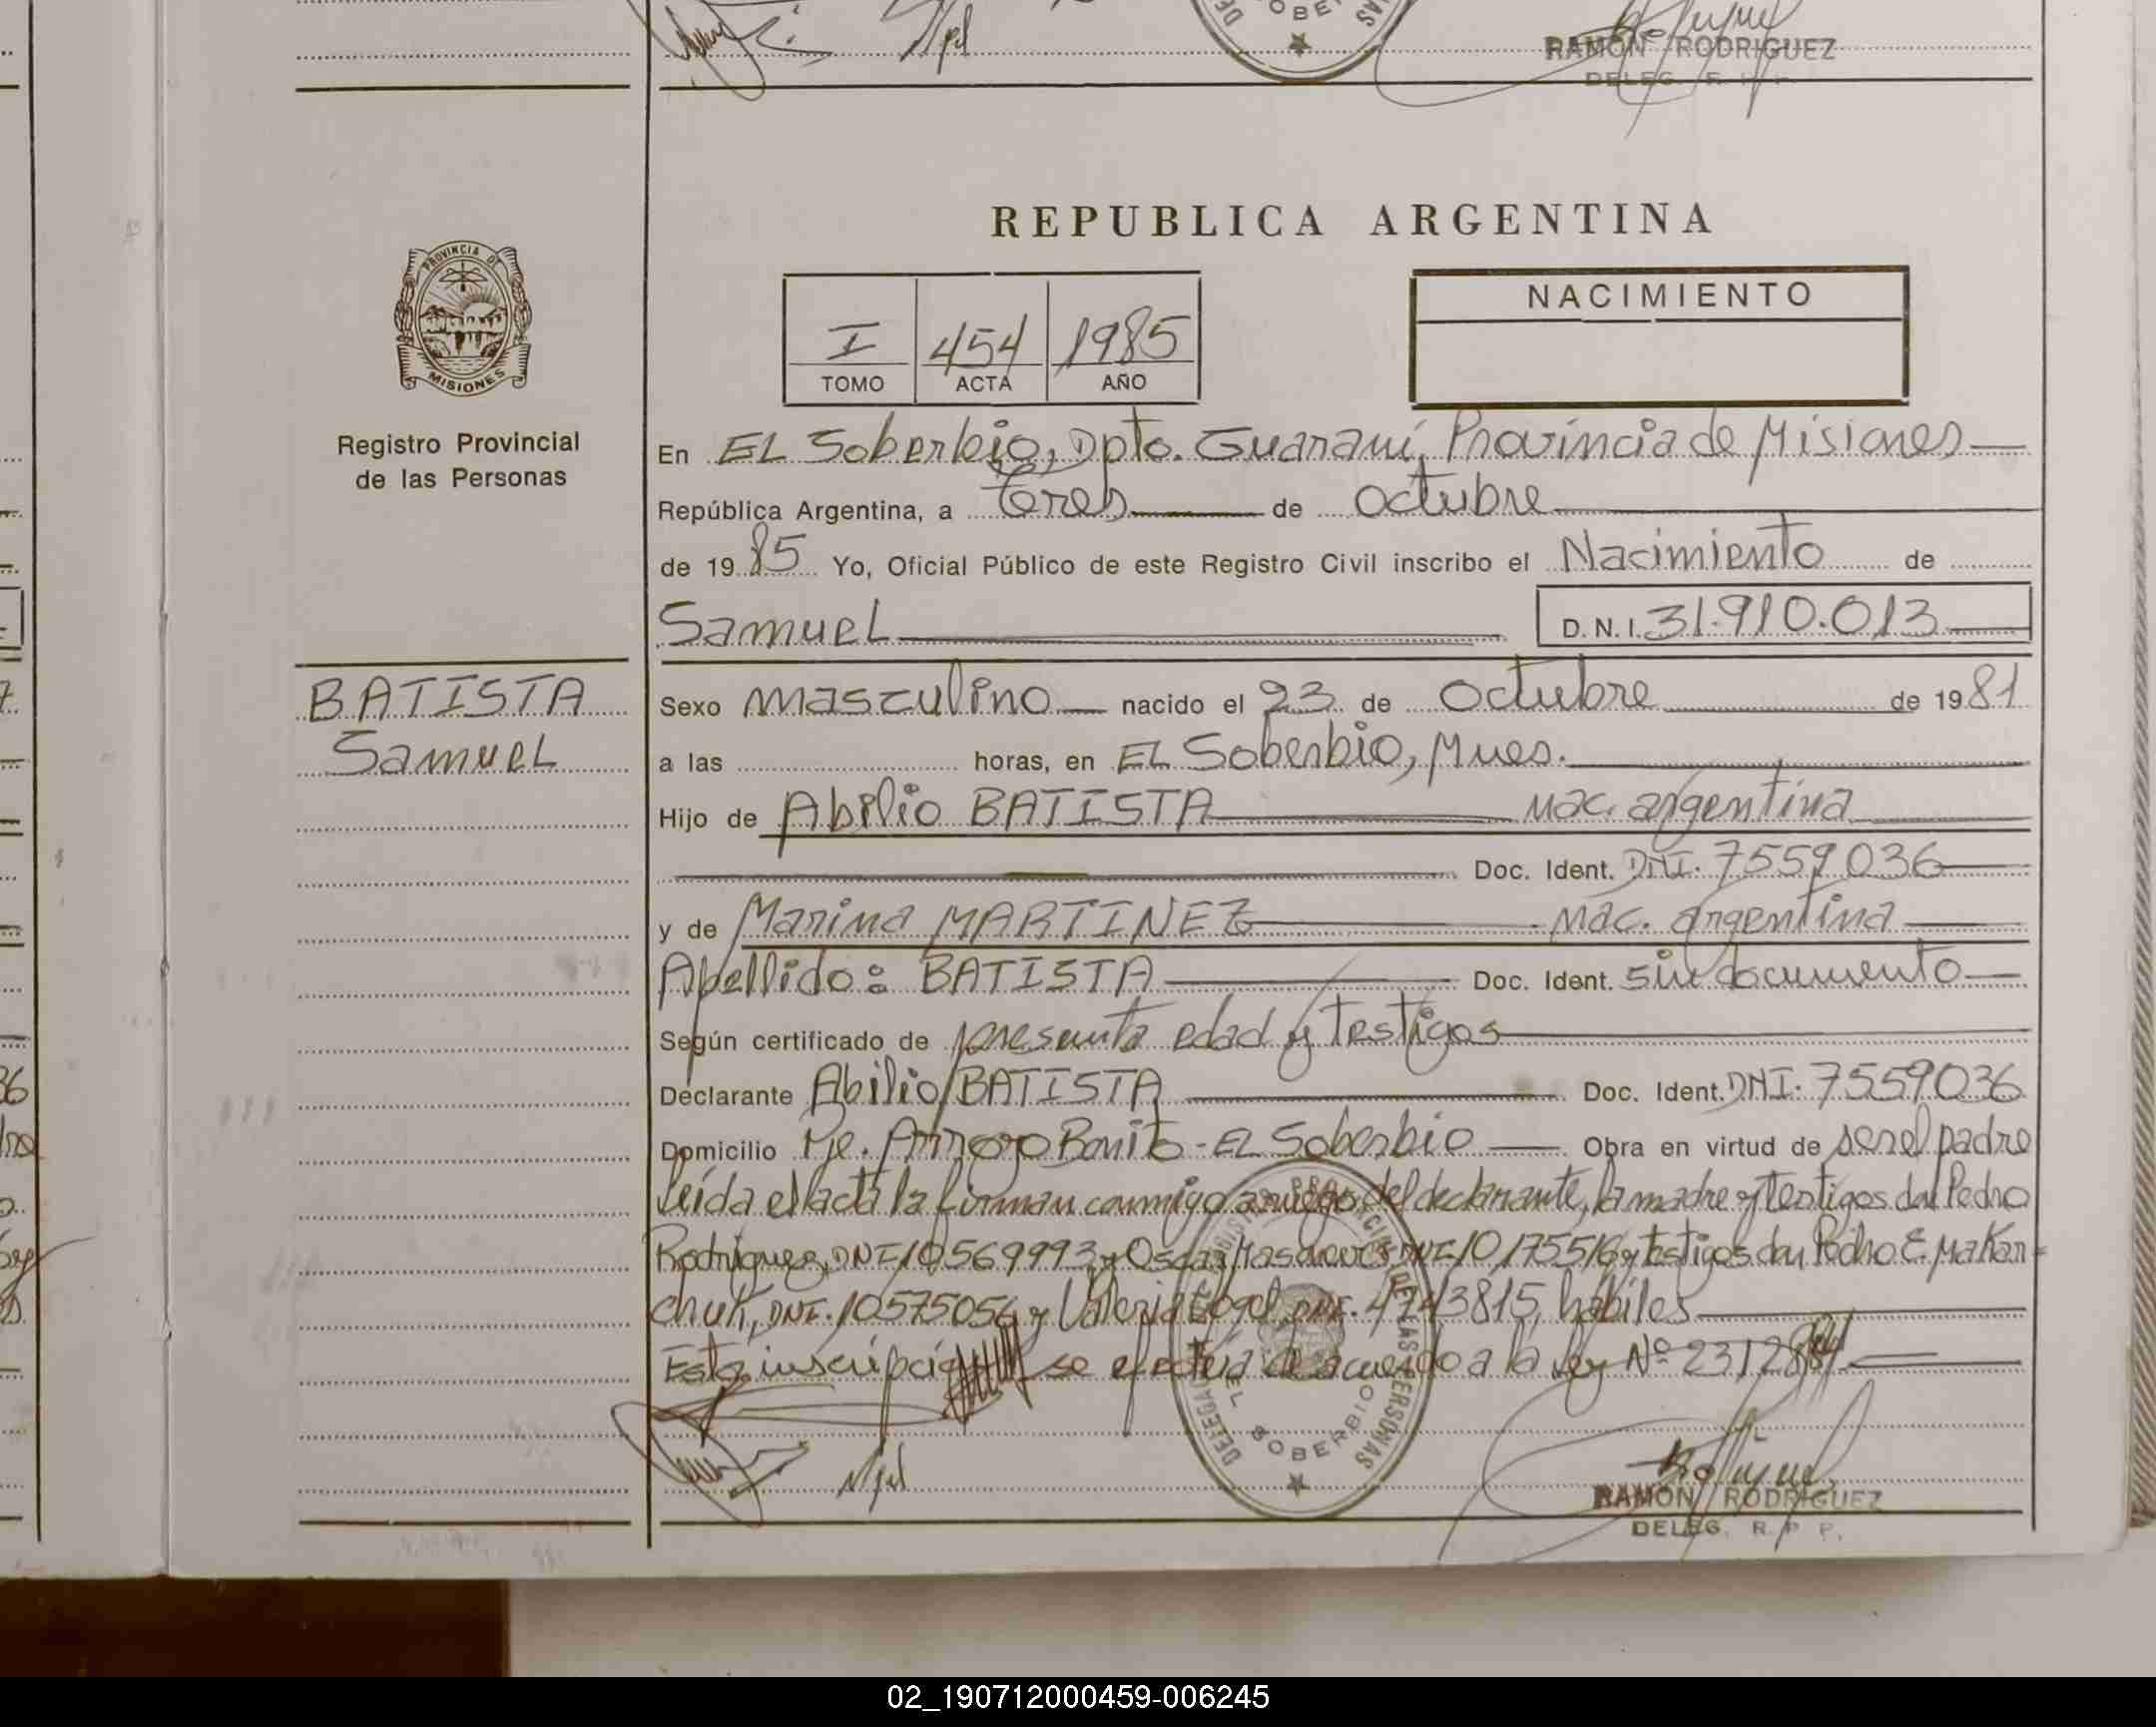 RAMON RODRIGUEZ
DELEG. R. P. P.
REPUBLICA ARGENTINA
PROVINCIA DE
MISIONES
Registro Provincial
de las Personas
I 454 1985
TOMO ACTA AÑO
NACIMIENTO
En EL Soberbio, Dpto. Guaraní, Provincia de Misiones
República Argentina, a tres de octubre
de 1985 Yo, Oficial Público de este Registro Civil inscribo el Nacimiento de
Samuel D.N.I. 31.910.013
BATISTA
Samuel
Sexo masculino nacido el 23 de Octubre de 1981
a las horas, en EL Soberbio, Mnes.
Hijo de Abilio BATISTA nac. argentina
Doc. Ident. DNI. 7559036
y de Marina MARTINEZ nac. argentina
Apellido: BATISTA Doc. Ident. sin documento
Según certificado de presunta edad y testigos
Declarante Abilio BATISTA Doc. Ident. DNI. 7559036
Domicilio Pje. Arroyo Bonito - EL Soberbio Obra en virtud de ser el padre
leída el acta la firman conmigo a ruego del declarante, la madre y testigos don Pedro
Rodriguez, DNI 10569993 y Oscar DNI 10175516 y testigos don Pedro E. Makar-
chuk, DNI. 10575054 y Valeria DNI. 4743815, hábiles
Esta inscripción se efectúa de acuerdo a la ley Nº 23128
EL SOBERBIO
RAMON RODRIGUEZ
DELEG. R. P. P.
02_190712000459-006245